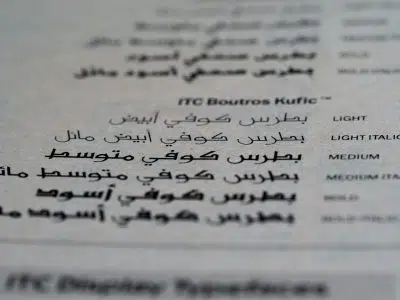 بطرس صحفي أسود
بطرس صحفي أسود مائل
ITC Boutros Kufic™
بطرس كوفي أبيض LIGHT
بطرس كوفي أبيض مائل LIGHT ITALIC
بطرس كوفي متوسط MEDIUM
بطرس كوفي متوسط مائل MEDIUM ITA
بطرس كوفي أسود BOLD
بطرس كوفي أسود ما BOLD ITALIC
ITC Display Typefaces